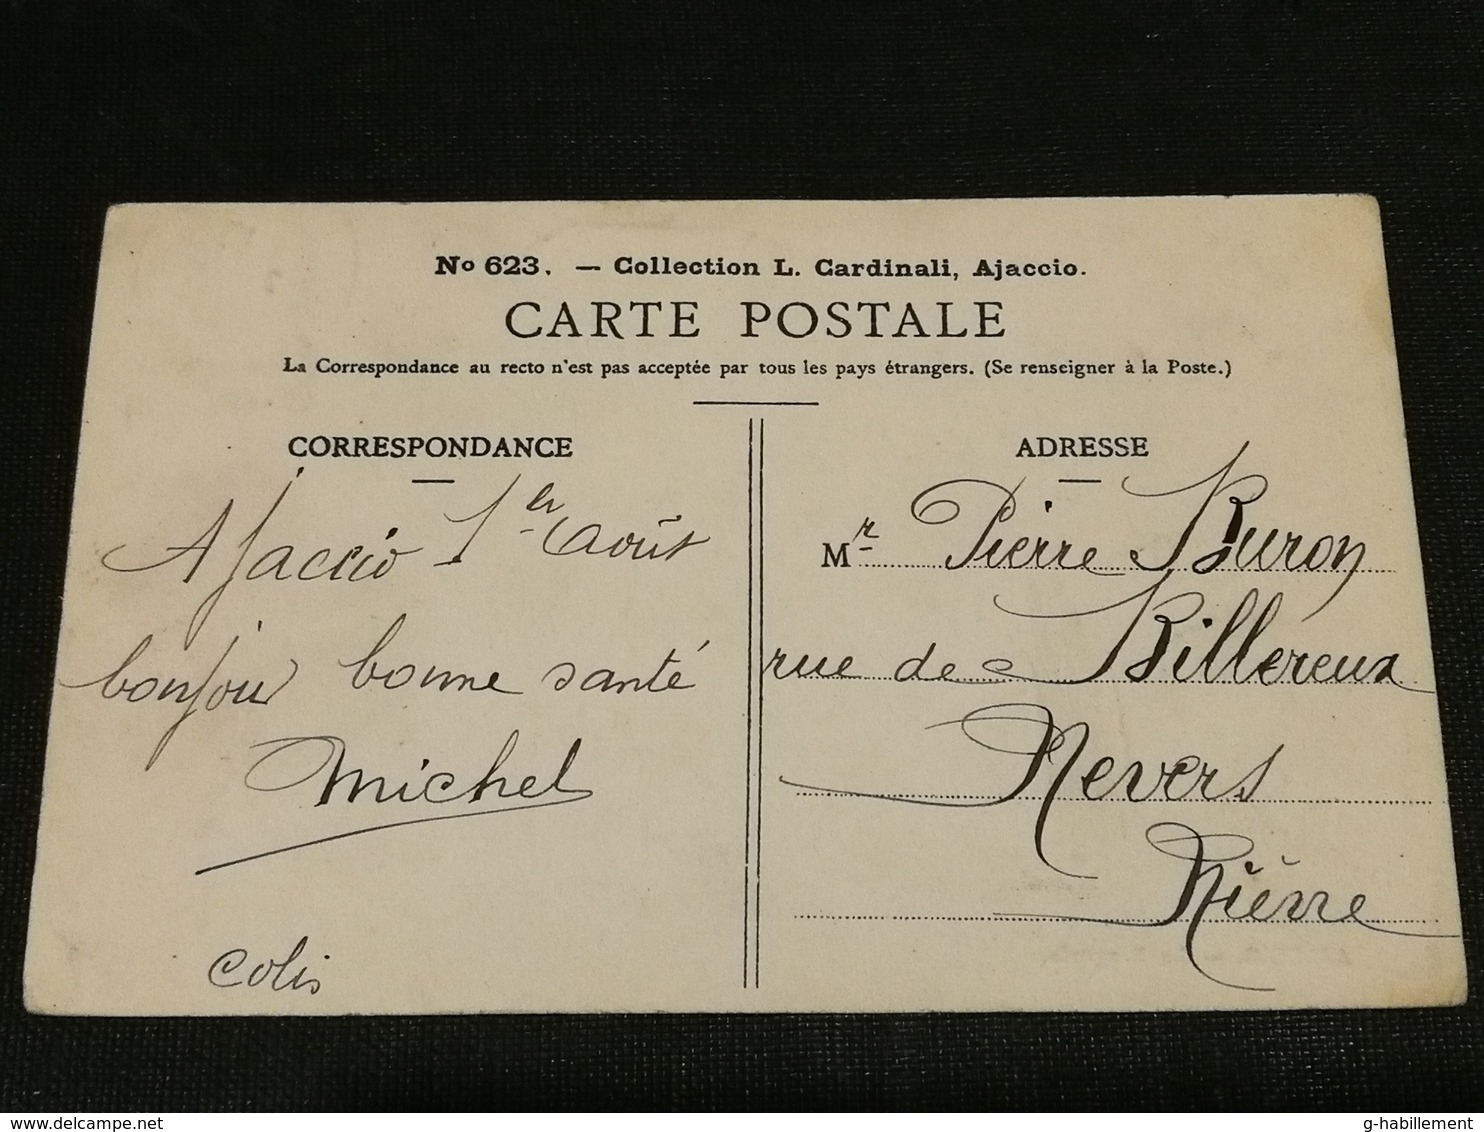 No 623. — Collection L. Cardinali, Ajaccio.
CARTE POSTALE
La Correspondance au recto n'est pas acceptée par tous les pays étrangers. (Se renseigner à la Poste.)
CORRESPONDANCE
Ajaccio 1er Août
bonjour bonne santé
Michel
colis
ADRESSE
Mr Pierre Buron
rue de Billereux
Nevers
Nièvre
www.delcampe.net
g-habillement